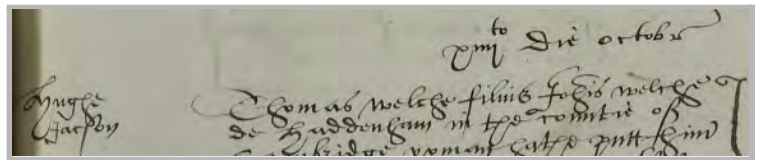 xiiij to die octobr
Hughe
Jackson
Thomas welche filius Johis welche
de Haddenham in the countie of
Cambridge yoman hathe putt him